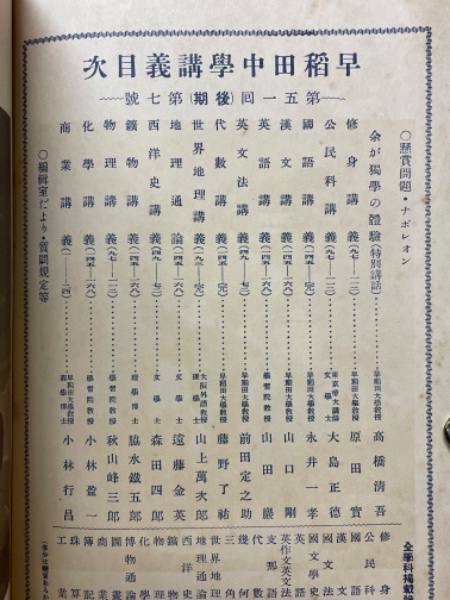 早稻田中學講義目次
第五一回(後期)第七號
○懸賞問題・ナポレオン
余が獨學の體驗(特別講話)……早稻田大學教授 高橋清吾
修身講義……早稻田大學教授 原田實
公民科講義……東京帝大講師 文學士 大島正德
國語講義……永井一孝
漢文講義……早稻田大學教授 山口剛
英語講義……學習院教授 山田巖
英文法講義(四九—七二)……前田定之助
代數講義(一四五—完)……早稻田大學教授 藤野了祐
世界地理講義(一九三—完)……大阪外語教授 理學士 山上萬次郎
地理通論(一四五—一六八)……文學士 遠藤金英
西洋史講義(四九—七二)……文學士 森田四郎
鑛物講義(一四五—完)……理學博士 脇水鐵五郎
物理講義(九七—一一二)……學習院教授 秋山峰三郎
化學講義(一四五—一六八)……學習院教授 小林盈一
商業講義(一—二四)……早稻田大學教授 商學博士 小林行昌
○編輯室だより・質問規定等
全學科揭載
修身
公民科
國語
漢文
國文
國文學史
英語
英作文英文法
支那語
代數
幾何
三角
世界地理
地理通論
西洋史
鑛物
物理
化學
博物通論
圖畫
商業
簿記
珠算
工業